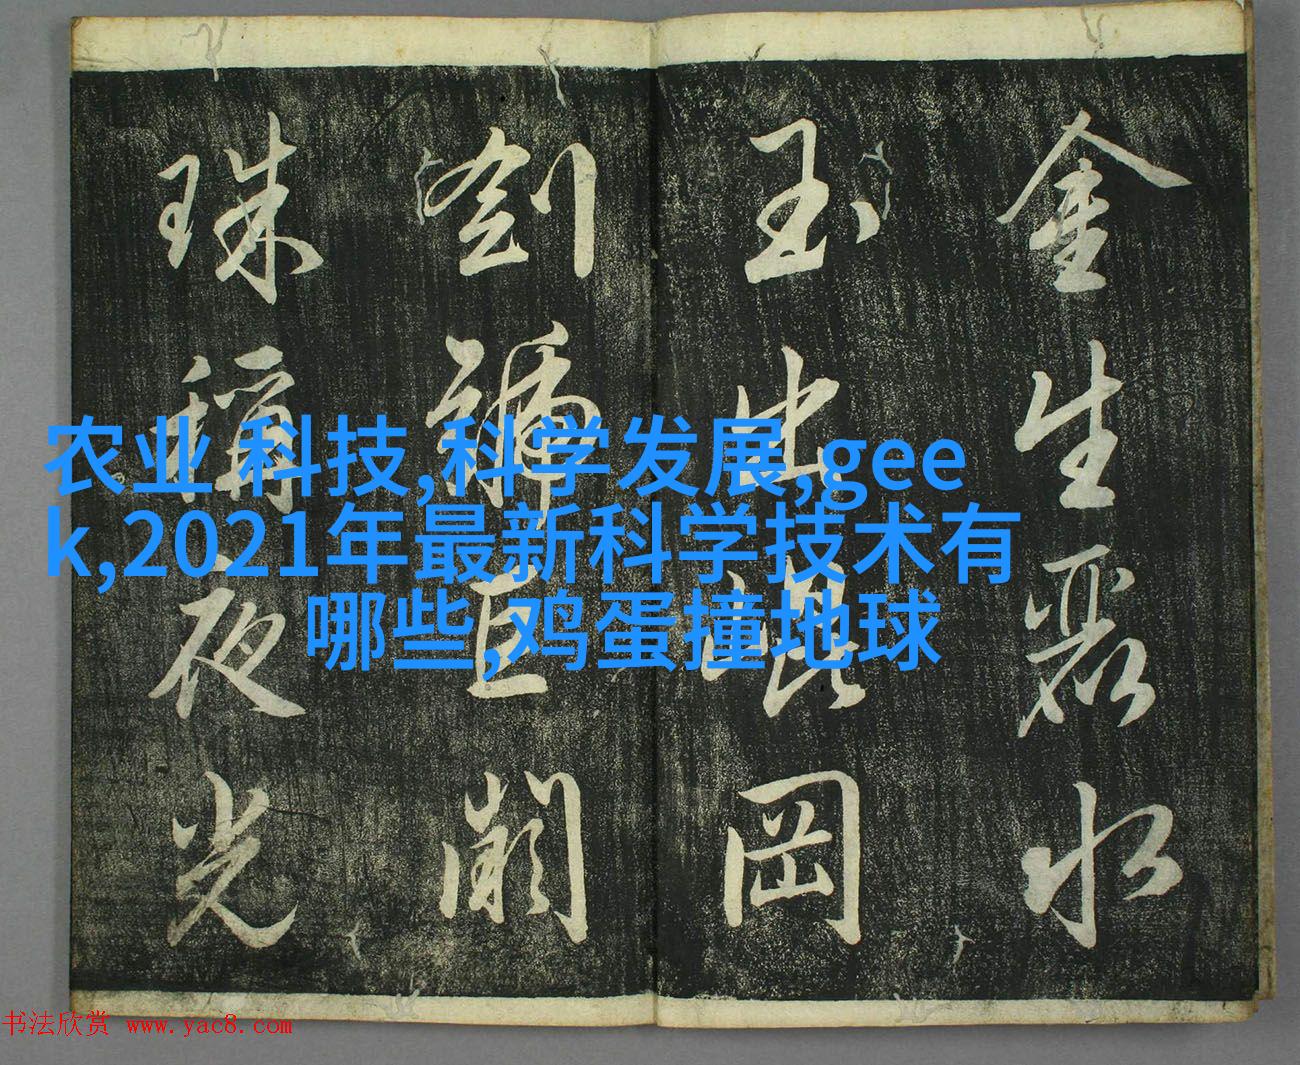 金生麗水
玉出崐岡
劍號巨闕
珠稱夜光
农业 科技,科学发展,gee
k,2021年最新科学技术有
哪些,鸡蛋撞地球
书法欣赏 www.yac8.com